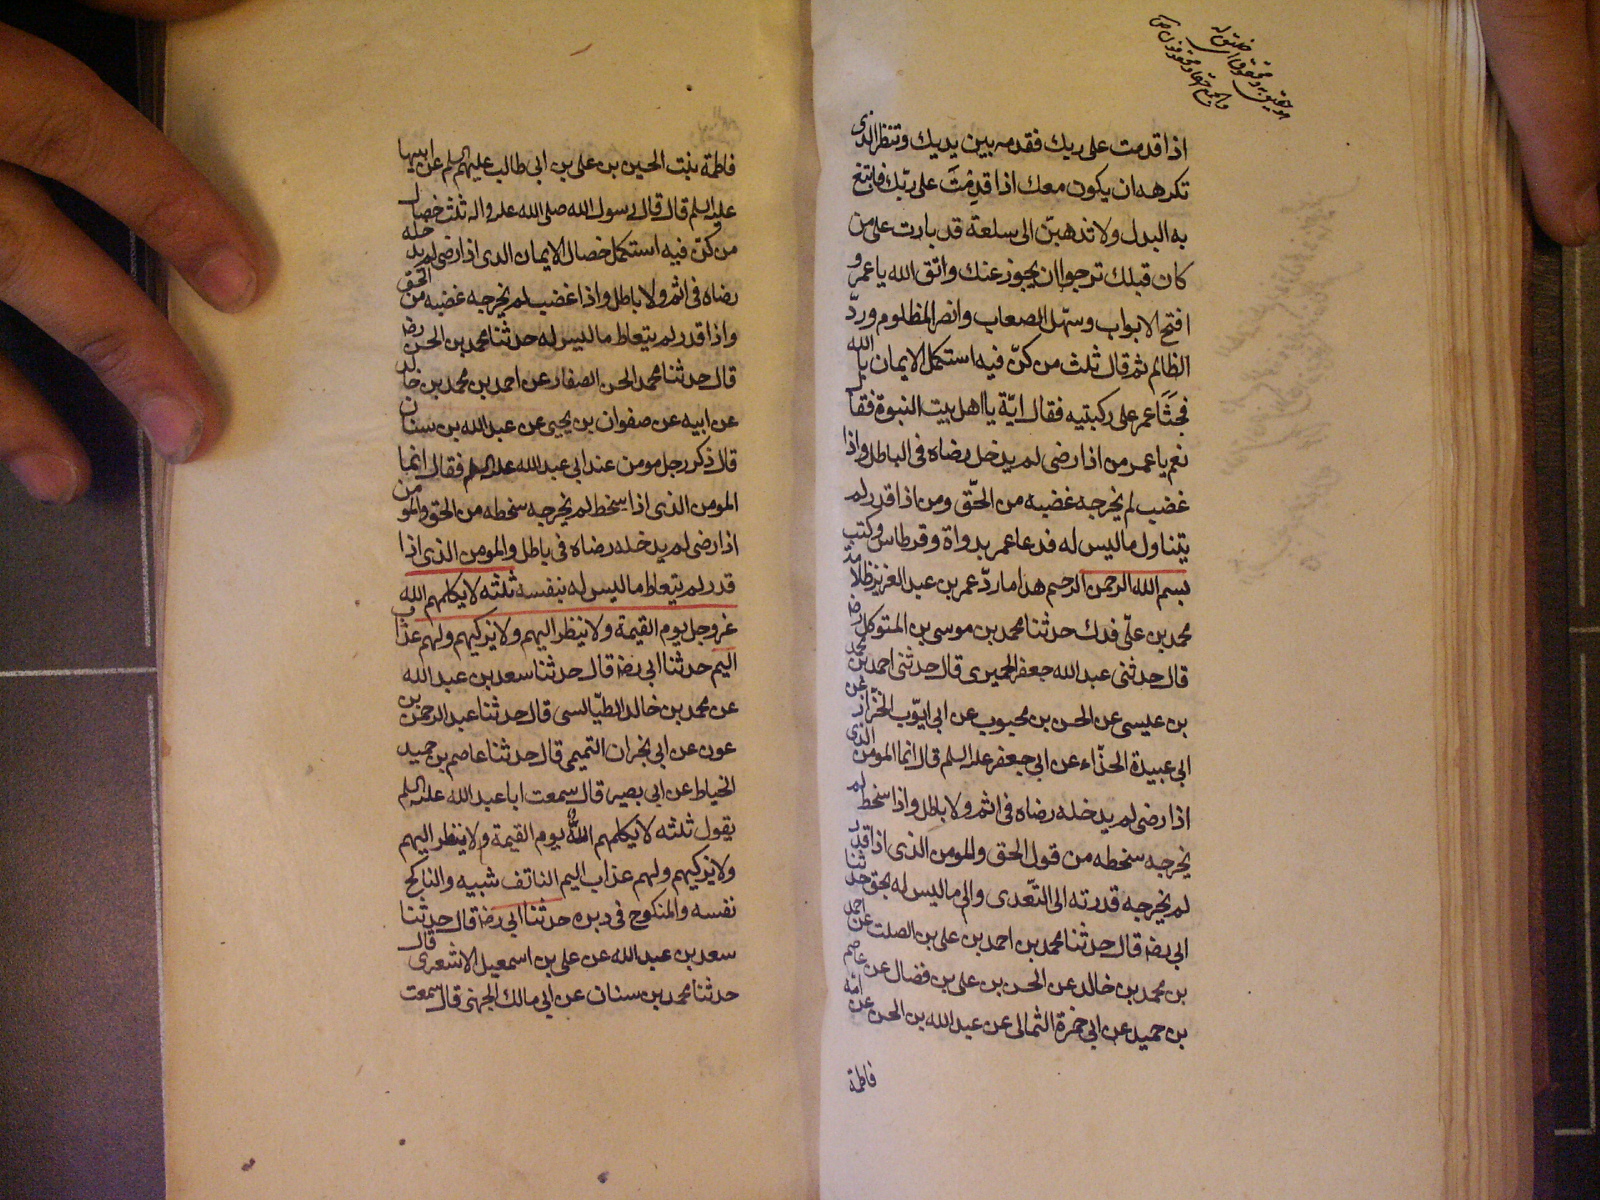 اذا قدمت على ربك فقدمه بين يديك وتنظر الذى
تكرهه ان يكون معك اذا قدمت على ربّك فابتغ
به البدل ولا تذهبنّ الى سلعة قد بارت على من
كان قبلك ترجوا ان يجوز عنك واتق الله يا عمر و
افتح الابواب وسهّل الصعاب وانصر المظلوم وردّ
الظالم ثم قال ثلث من كنّ فيه استكمل الايمان بالله
فجثا عمر على ركبتيه فقال ايّة يا اهل بيت النبوة فقال
نعم يا عمر من اذا رضى لم يدخل رضاه فى الباطل واذا
غضب لم يخرجه غضبه من الحقّ ومن اذا قدر لم
يتناول ما ليس له فدعا عمر بدواة وقرطاس وكتب
بسم الله الرحمن الرحيم هذا ما ردّ عمر بن عبد العزيز ظلامة
محمد بن علّى فدك حدثنا محمد بن موسى بن المتوكل رض
قال حدثنى عبد الله جعفر الحميرى قال حدثنى احمد بن محمد
بن عيسى عن الحسن بن محبوب عن ابى ايّوب الخزّاز عن
ابى عبيدة الحذّاء عن ابى جعفر عليه السلم قال انما المومن الذى
اذا رضى لم يدخله رضاه فى اثم ولا باطل واذا سخط لم
يخرجه سخطه من قول الحق والمومن الذى اذا قدر
لم يخرجه قدرته الى التّعدى والى ما ليس له بحق حدثنا
ابى رضه قال حدثنا محمد بن احمد بن على بن الصلت عن احمد
بن محمد بن خالد عن الحسن بن على بن فضال عن عاصم
بن حميد عن ابى حمزة الثمالى عن عبد الله بن الحسن عن امه
فاطمة
فاطمة بنت الحسين بن على بن ابى طالب عليهم السلم عن ابيها
عليه السلم قال قال رسول الله صلى الله عليه واله ثلث خصال
من كنّ فيه استكمل خصال الايمان الذى اذا رضى لم يدخله
رضاه فى اثم ولا باطل واذا غضب لم يخرجه غضبه من الحق
واذا قدر لم يتعاط ما ليس له حدثنا محمد بن الحسن رض
قال حدثنا محمد الحسن الصفار عن احمد بن محمد بن خالد
عن ابيه عن صفوان بن يحيى عن عبد الله بن سنان
قال ذكر رجل مومن عند ابى عبد الله عليه السلم فقال انما
المومن الذى اذا سخط لم يخرجه سخطه من الحق والمومن
اذا رضى لم يدخله رضاه فى باطل والمومن الذى اذا
قدر لم يتعاط ما ليس له بنفسه ثلثه لا يكلمهم الله
عز وجل يوم القيمة ولا ينظر اليهم ولا يزكيهم ولهم عذاب
اليم حدثنا ابى رضه قال حدثنا سعد بن عبد الله
عن محمد بن خالد الطيّالسى قال حدثنا عبد الرحمن بن
عون عن ابى نجران التميمى قال حدثنا عاصم بن حميد
الخياط عن ابى بصير قال سمعت ابا عبد الله عليه السلم
يقول ثلثه لا يكلمهم الله يوم القيمة ولا ينظر اليهم
ولا يزكيهم ولهم عذاب اليم الناتف شيبه والناكح
نفسه والمنكوح فى دبره حدثنا ابى رضه قال حدثنا
سعد بن عبد الله عن على بن اسمعيل الاشعرى قال
حدثنا محمد بن سنان عن ابى مالك الجهنى قال سمعت